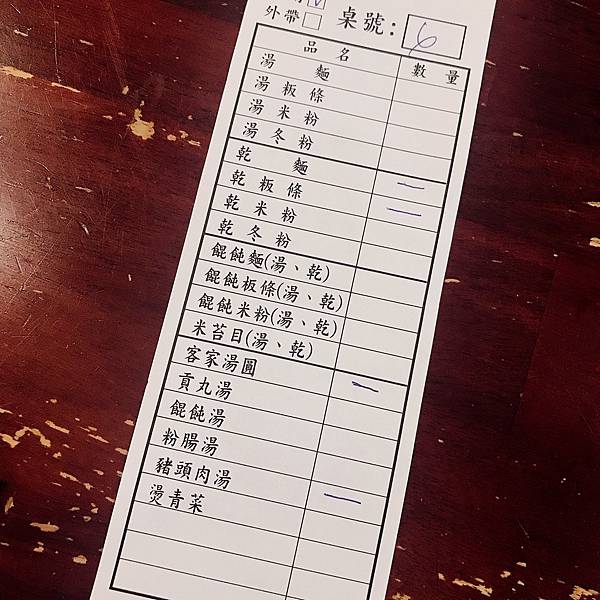 外帶 桌號: 6
品名 數量
湯麵
湯粄條
湯米粉
湯冬粉
乾麵 一
乾粄條 一
乾米粉
乾冬粉
餛飩麵(湯、乾)
餛飩粄條(湯、乾)
餛飩米粉(湯、乾)
米苔目(湯、乾)
客家湯圓 一
貢丸湯
餛飩湯
粉腸湯
豬頭肉湯 一
燙青菜